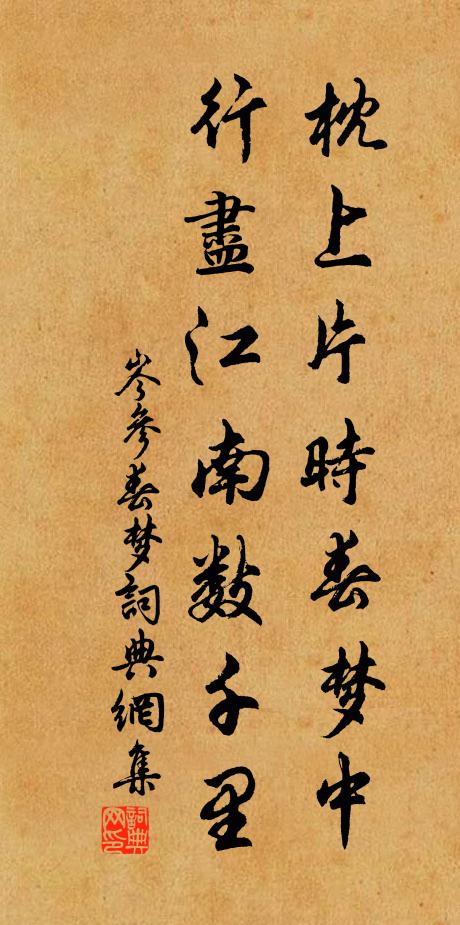 枕上片時春梦中
行盡江南數千里
岑參春梦詞典網集
詞典網印